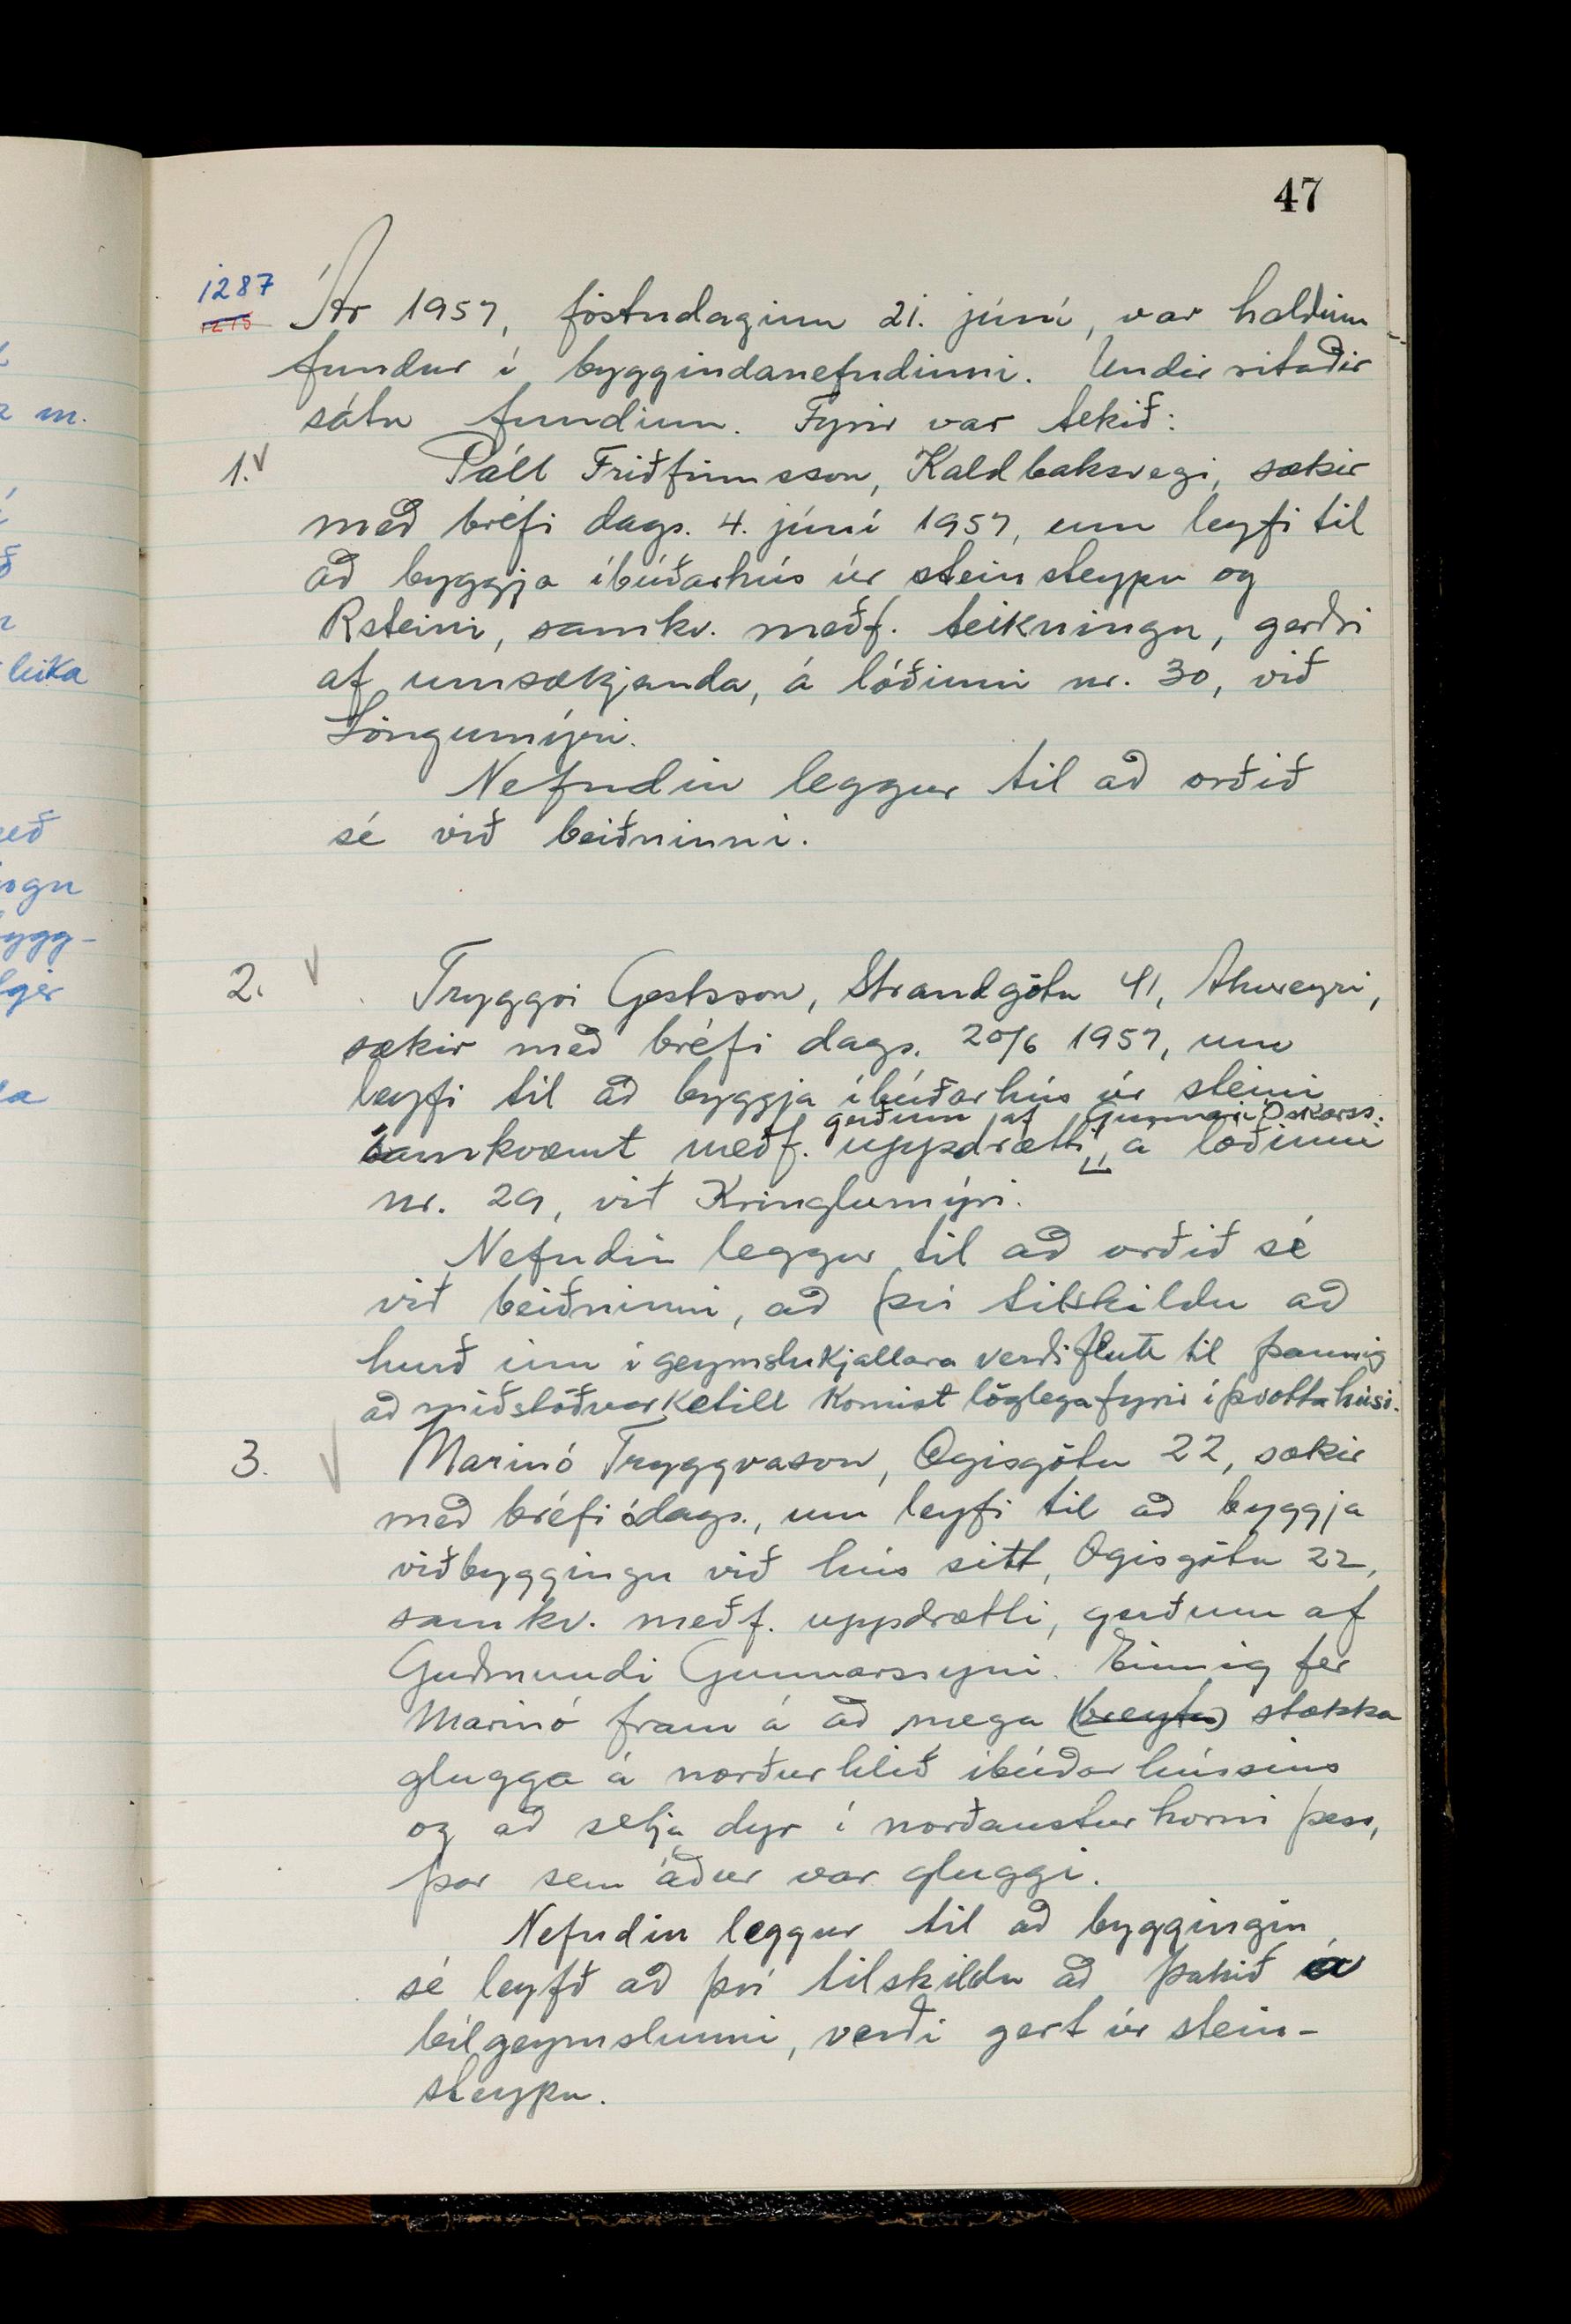 47
1287
1275
Ár 1957, föstudaginn 21. júní, var haldinn
fundur í byggindanefndinni. Undirritaðir
sátu fundinn. Fyrir var tekið:
1. Páll Friðfinnsson, Kaldbaksvegi, sækir
með bréfi dags. 4. júní 1957, um leyfi til
að byggja íbúðarhús úr steinsteypu og
Rsteini, samkv. meðf. teikningu, gerðri
af umsækjanda, á lóðinni nr. 30, við
Löngumýri.
Nefndin leggur til að orðið
sé við beiðninni.
2. Tryggvi Gestsson, Strandgötu 41, Akureyri,
sækir með bréfi dags. 20/6 1957, um
leyfi til að byggja íbúðarhús úr steini
gerðum af Gunnari Óskarss.
samkvæmt meðf. uppdrætti, á lóðinni
nr. 29, við Kringlumýri.
Nefndin leggur til að orðið sé
við beiðninni, að því tilskildu að
hurð inn í geymslukjallara verði flutt til þannig
að miðstöðvarketill komist löglega fyrir í þvottahúsi.
3. Marinó Tryggvason, Ægisgötu 22, sækir
með bréfi ódags., um leyfi til að byggja
viðbyggingu við hús sitt, Ægisgötu 22,
samkv. meðf. uppdrætti, gerðum af
Guðmundi Gunnarssyni. Einnig fer
Marinó fram á að mega (breyta) stækka
glugga á norðurhlið íbúðarhússins
og að setja dyr í norðausturhorni þess,
þar sem áður var gluggi.
Nefndin leggur til að byggingin
sé leyfð að því tilskildu að þakið á
bílgeymslunni, verði gert úr stein-
steypu.